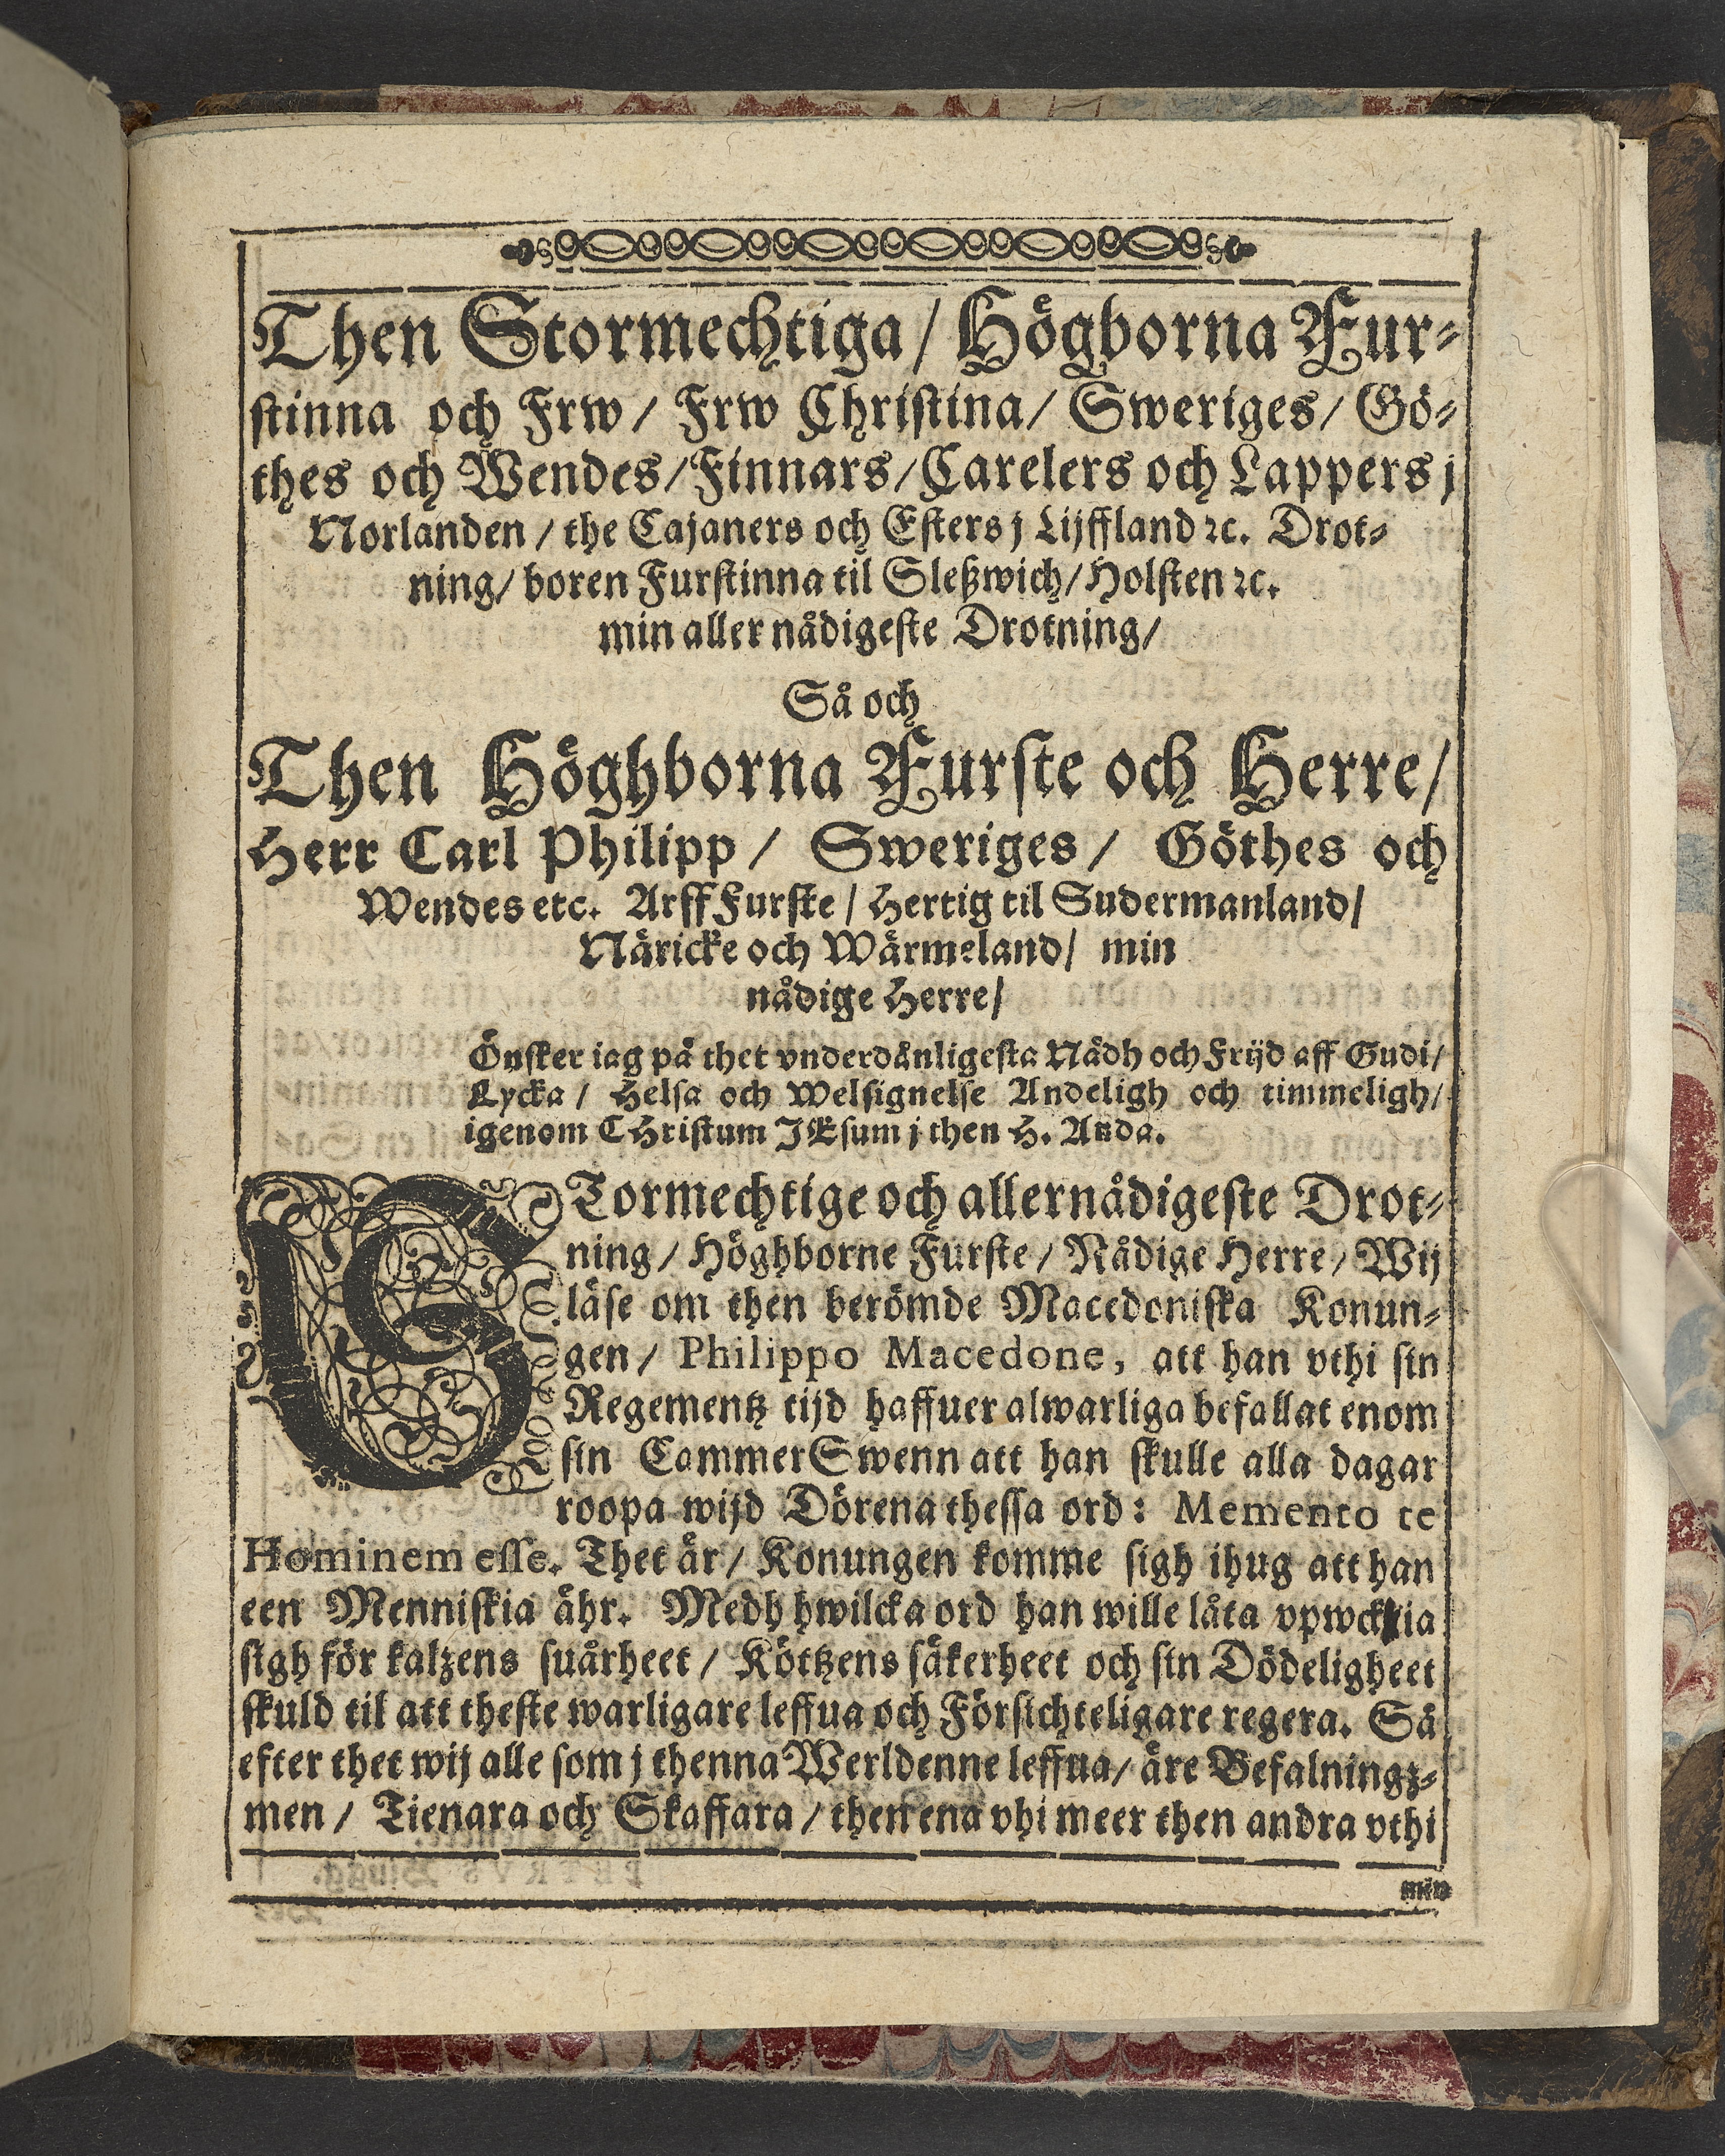 Then Stormechtiga/ Högborna Fur-
stinna och Frw/ Frw Christina/ Sweriges/ Gö-
thes och Wendes/ Finnars/ Carelers och Lappers j
Norlanden/ the Cajaners och Esters j Lijffland ꝛc. Drot-
ning/ boren Furstinna til Sleßwich/ Holsten ꝛc.
min aller nådigeste Drotning/
Så och
Then Höghborna Furste och Herre/
Herr Carl Philipp/ Sweriges/ Göthes och
Wendes etc. Arff Furste/ Hertig til Sudermanland/
Näricke och Wärmeland/ min
nådige Herre/
Önsker iag på thet vnderdånligesta Nådh och Frijd aff Gudi/
Lycka/ Helsa och Welsignelse Andeligh och timmeligh/
igenom CHristum JEsum j then H. Anda.
STormechtige och allernådigeste Drot-
ning/ Höghborne Furste/ Nådige Herre/ Wij
läse om then berömde Macedoniska Konun-
gen/ Philippo Macedone, att han vthi sin
Regementz tijd haffuer alwarliga befallat enom
sin CammerSwenn att han skulle alla dagar
roopa wijd Dörena thessa ord: Memento te
Hominem esse. Thet är/ Konungen komme sigh ihug att han
een Menniskia ähr. Medh hwilcka ord han wille låta vpweckia
sigh för kalzens suårheet/ Köttzens säkerheet och sin Dödeligheet
skuld til att theste warligare leffua och Försichteligare regera. Så
efter thet wij alle som j thenna Werldenne leffua/ äre Befalningz-
men/ Tienara och Skaffara/ then ena vhi meer then andra vthi